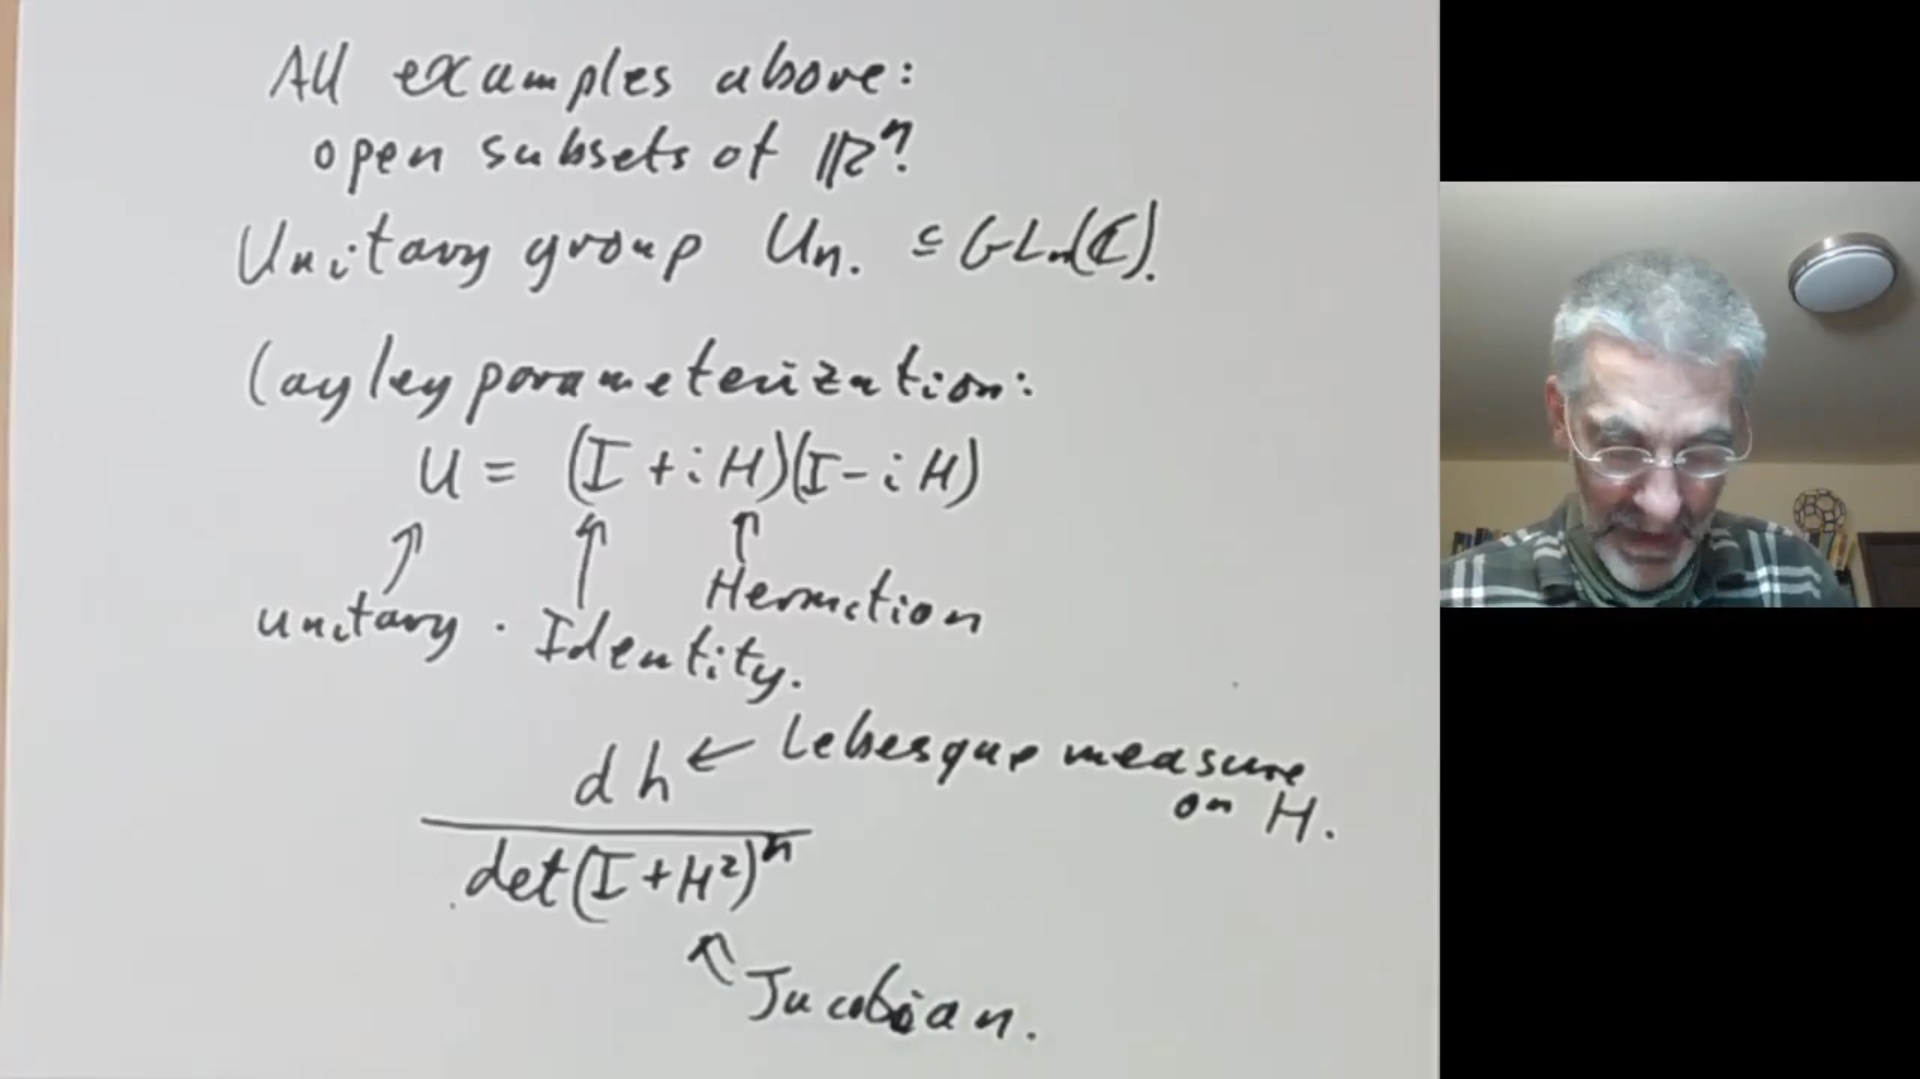 All examples above:
open subsets of ℝⁿ?
Unitary group Uₙ. ⊆ GLₙ(ℂ).
Cayley parameterization:
U = (I + iH)(I - iH)
unitary. Identity. Hermition
dh ← Lebesgue measure
on H.
det(I + H²)ⁿ
Jacobian.